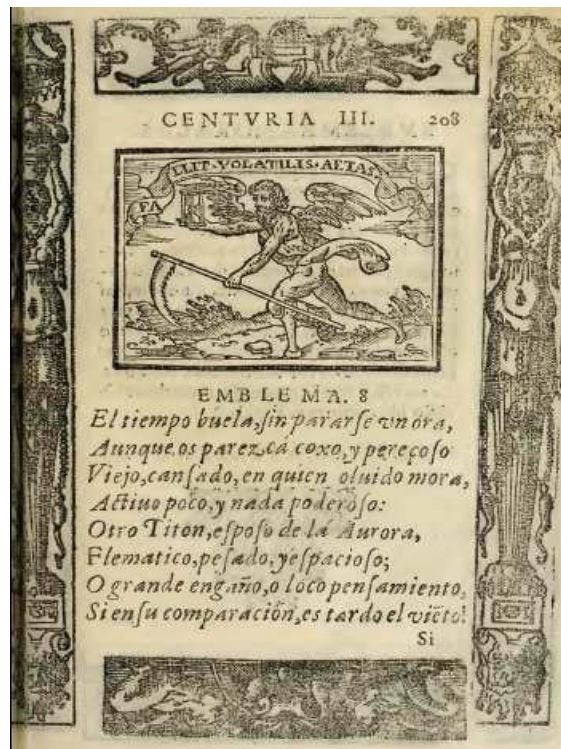 CENTVRIA III. 208
FALLIT·VOLATILIS·AETAS
EMBLEMA. 8
El tiempo buela, ſin pararſe vn ora,
Aunque os parezca coxo, y pereçoſo
Viejo, canſado, en quien oluido mora,
Actiuo poco, y nada poderoſo:
Otro Titon, eſpoſo de la Aurora,
Flematico, peſado, y eſpacioſo;
O grande engaño, o loco penſamiento,
Si en ſu comparación, es tardo el viẽto!
Si